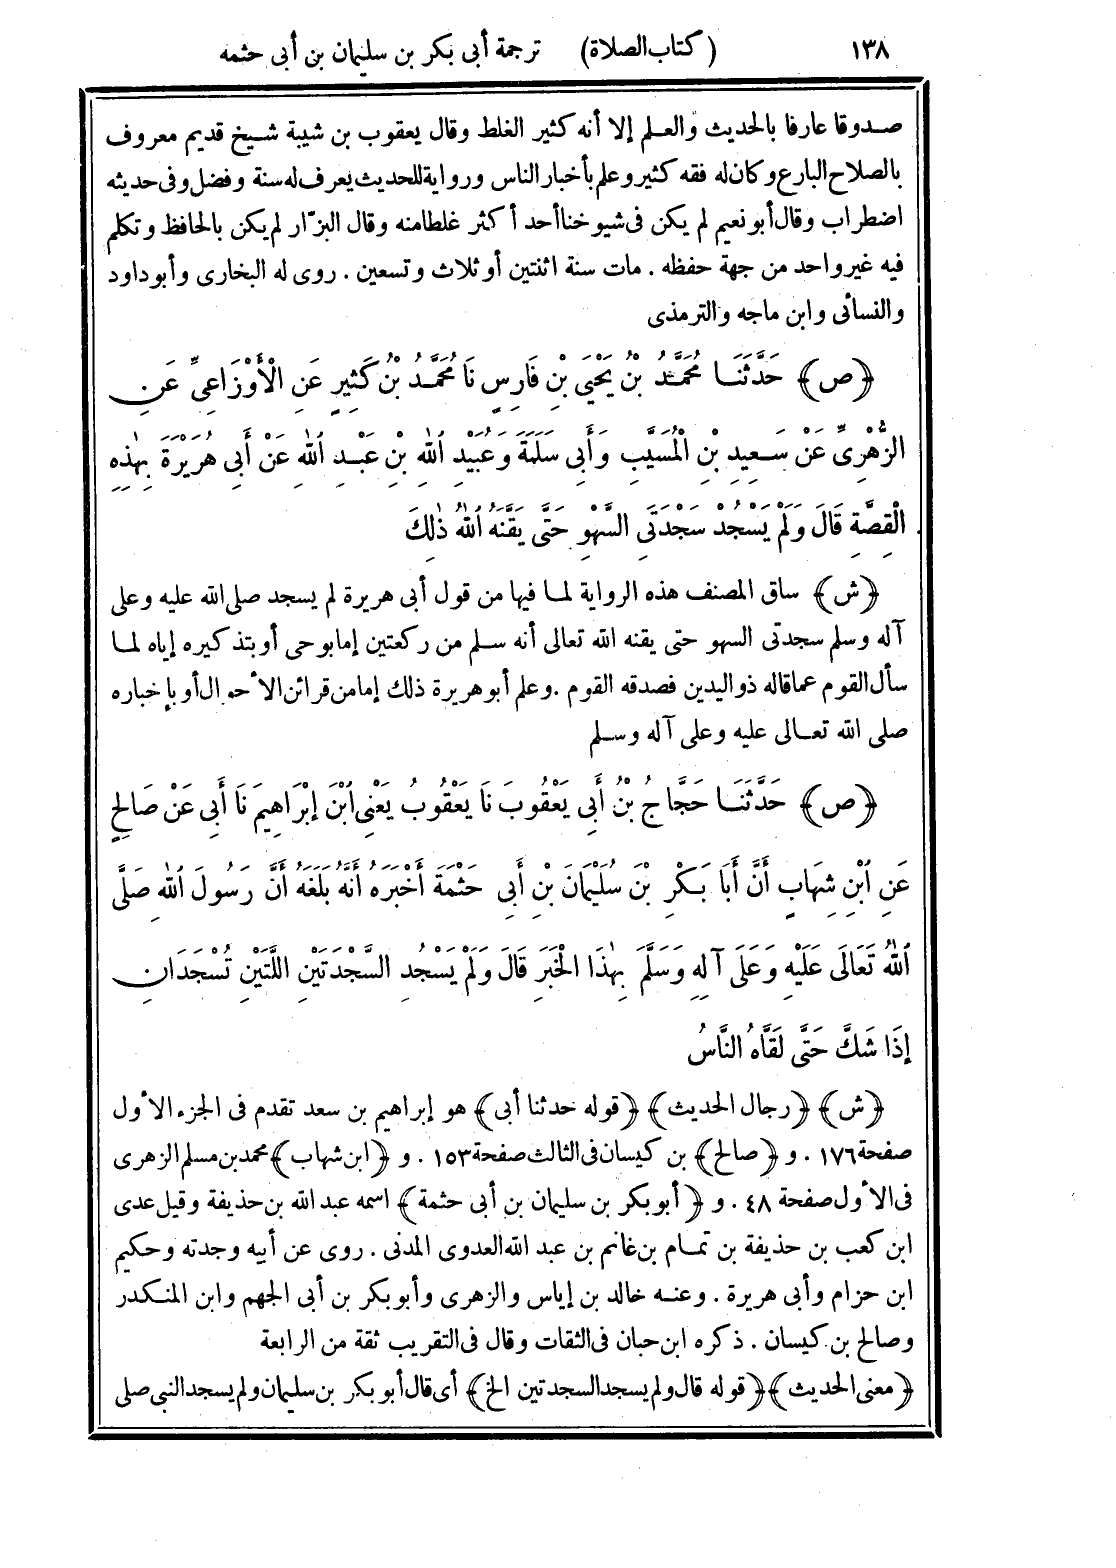 ١٣٨ (كتاب الصلاة) ترجمة أبى بكر بن سليمان بن أبى حثمه
صدوقا عارفا بالحديث والعلم إلا أنه كثير الغلط وقال يعقوب بن شيبة شيخ قديم معروف
بالصلاح البارع وكان له فقه كثير وعلم بأخبار الناس ورواية للحديث يعرف له سنة وفضل وفى حديثه
اضطراب وقال أبو نعيم لم يكن فى شيوخنا أحد أكثر غلطا منه وقال البزّار لم يكن بالحافظ وتكلم
فيه غير واحد من جهة حفظه . مات سنة اثنتين أو ثلاث وتسعين . روى له البخارى وأبو داود
والنسائى وابن ماجه والترمذى
﴿ص﴾ حَدَّثَنَا مُحَمَّدُ بْنُ يَحْيَى بْنِ فَارِسٍ نَا مُحَمَّدُ بْنُ كَثِيرٍ عَنِ الْأَوْزَاعِيِّ عَنِ
الزُّهْرِيِّ عَنْ سَعِيدِ بْنِ الْمُسَيَّبِ وَأَبِى سَلَمَةَ وَعُبَيْدِ ٱللهِ بْنِ عَبْدِ ٱللهِ عَنْ أَبِى هُرَيْرَةَ بِهٰذِهِ
الْقِصَّةِ قَالَ وَلَمْ يَسْجُدْ سَجْدَتَىِ السَّهْوِ حَتَّى يَقَّنَهُ ٱللهُ ذٰلِكَ
﴿ش﴾ ساق المصنف هذه الرواية لما فيها من قول أبى هريرة لم يسجد صلى الله عليه وعلى
آله وسلم سجدتى السهو حتى يقنه الله تعالى أنه سلم من ركعتين إما بوحى أو بتذكيره إياه لما
سأل القوم عما قاله ذو اليدين فصدقه القوم . وعلم أبو هريرة ذلك إما من قرائن الأحوال أو بإخباره
صلى الله تعالى عليه وعلى آله وسلم
﴿ص﴾ حَدَّثَنَا حَجَّاجُ بْنُ أَبِى يَعْقُوبَ نَا يَعْقُوبُ يَعْنِى ٱبْنَ إِبْرَاهِيمَ نَا أَبِى عَنْ صَالِحٍ
عَنِ ٱبْنِ شِهَابٍ أَنَّ أَبَا بَكْرِ بْنَ سُلَيْمَانَ بْنِ أَبِى حَثْمَةَ أَخْبَرَهُ أَنَّهُ بَلَغَهُ أَنَّ رَسُولَ ٱللهِ صَلَّى
ٱللهُ تَعَالَى عَلَيْهِ وَعَلَى آلِهِ وَسَلَّمَ بِهٰذَا الْخَبَرِ قَالَ وَلَمْ يَسْجُدِ السَّجْدَتَيْنِ اللَّتَيْنِ تُسْجَدَانِ
إِذَا شَكَّ حَتَّى لَقَّاهُ النَّاسُ
﴿ش﴾ ﴿رجال الحديث﴾ ﴿قوله حدثنا أبى﴾ هو إبراهيم بن سعد تقدم فى الجزء الأول
صفحة ١٧٦ . و ﴿صالح﴾ بن كيسان فى الثالث صفحة ١٥٣ . و ﴿ابن شهاب﴾ محمد بن مسلم الزهرى
فى الأول صفحة ٤٨ . و ﴿أبو بكر بن سليمان بن أبى حثمة﴾ اسمه عبد الله بن حذيفة وقيل عدى
ابن كعب بن حذيفة بن تمام بن غانم بن عبد الله العدوى المدنى . روى عن أبيه وجدته وحكيم
ابن حزام وأبى هريرة . وعنه خالد بن إياس والزهرى وأبو بكر بن أبى الجهم وابن المنكدر
وصالح بن كيسان . ذكره ابن حبان فى الثقات وقال فى التقريب ثقة من الرابعة
﴿معنى الحديث﴾ ﴿قوله قال ولم يسجد السجدتين الخ﴾ أى قال أبو بكر بن سليمان ولم يسجد النبى صلى